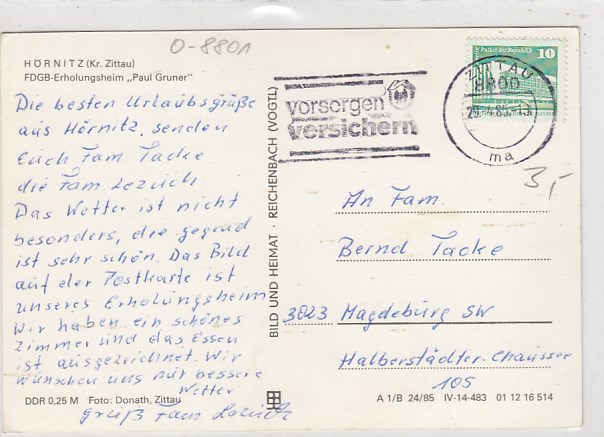 O-8801
HÖRNITZ (Kr. Zittau)
FDGB-Erholungsheim „Paul Gruner"
Die besten Urlaubsgrüße
aus Hörnitz, senden
Euch Fam. Tacke
die Fam
Das Wetter ist nicht
besonders, die gegend
ist sehr schön. Das Bild
auf der Postkarte ist
unseres Erholungsheim
Wir haben ein schönes
Zimmer und das Essen
ist ausgezeichnet. Wir
wünschen uns nur bessere
Wetter
Gruß Fam
DDR 0,25 M Foto: Donath, Zittau
BILD UND HEIMAT · REICHENBACH (VOGTL)
vorsorgen
versichern
Palast der Republik
10
ZITTAU
8800
ma
3,-
An Fam.
Bernd Tacke
3023 Magdeburg SW
Halberstädter-Chaussee
105
A 1/B 24/85 IV-14-483 01 12 16 514